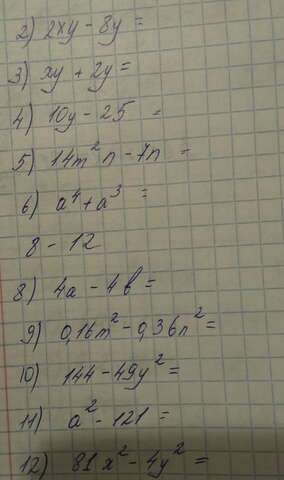 2) 2xy - 8y =
3) xy + 2y =
4) 10y - 25 =
5) 14m² n - 7n =
6) a⁴ + a³ =
8 - 12
8) 4a - 4b =
9) 0,16m² - 0,36n² =
10) 144 - 49y² =
11) a² - 121 =
12) 81x² - 4y² =